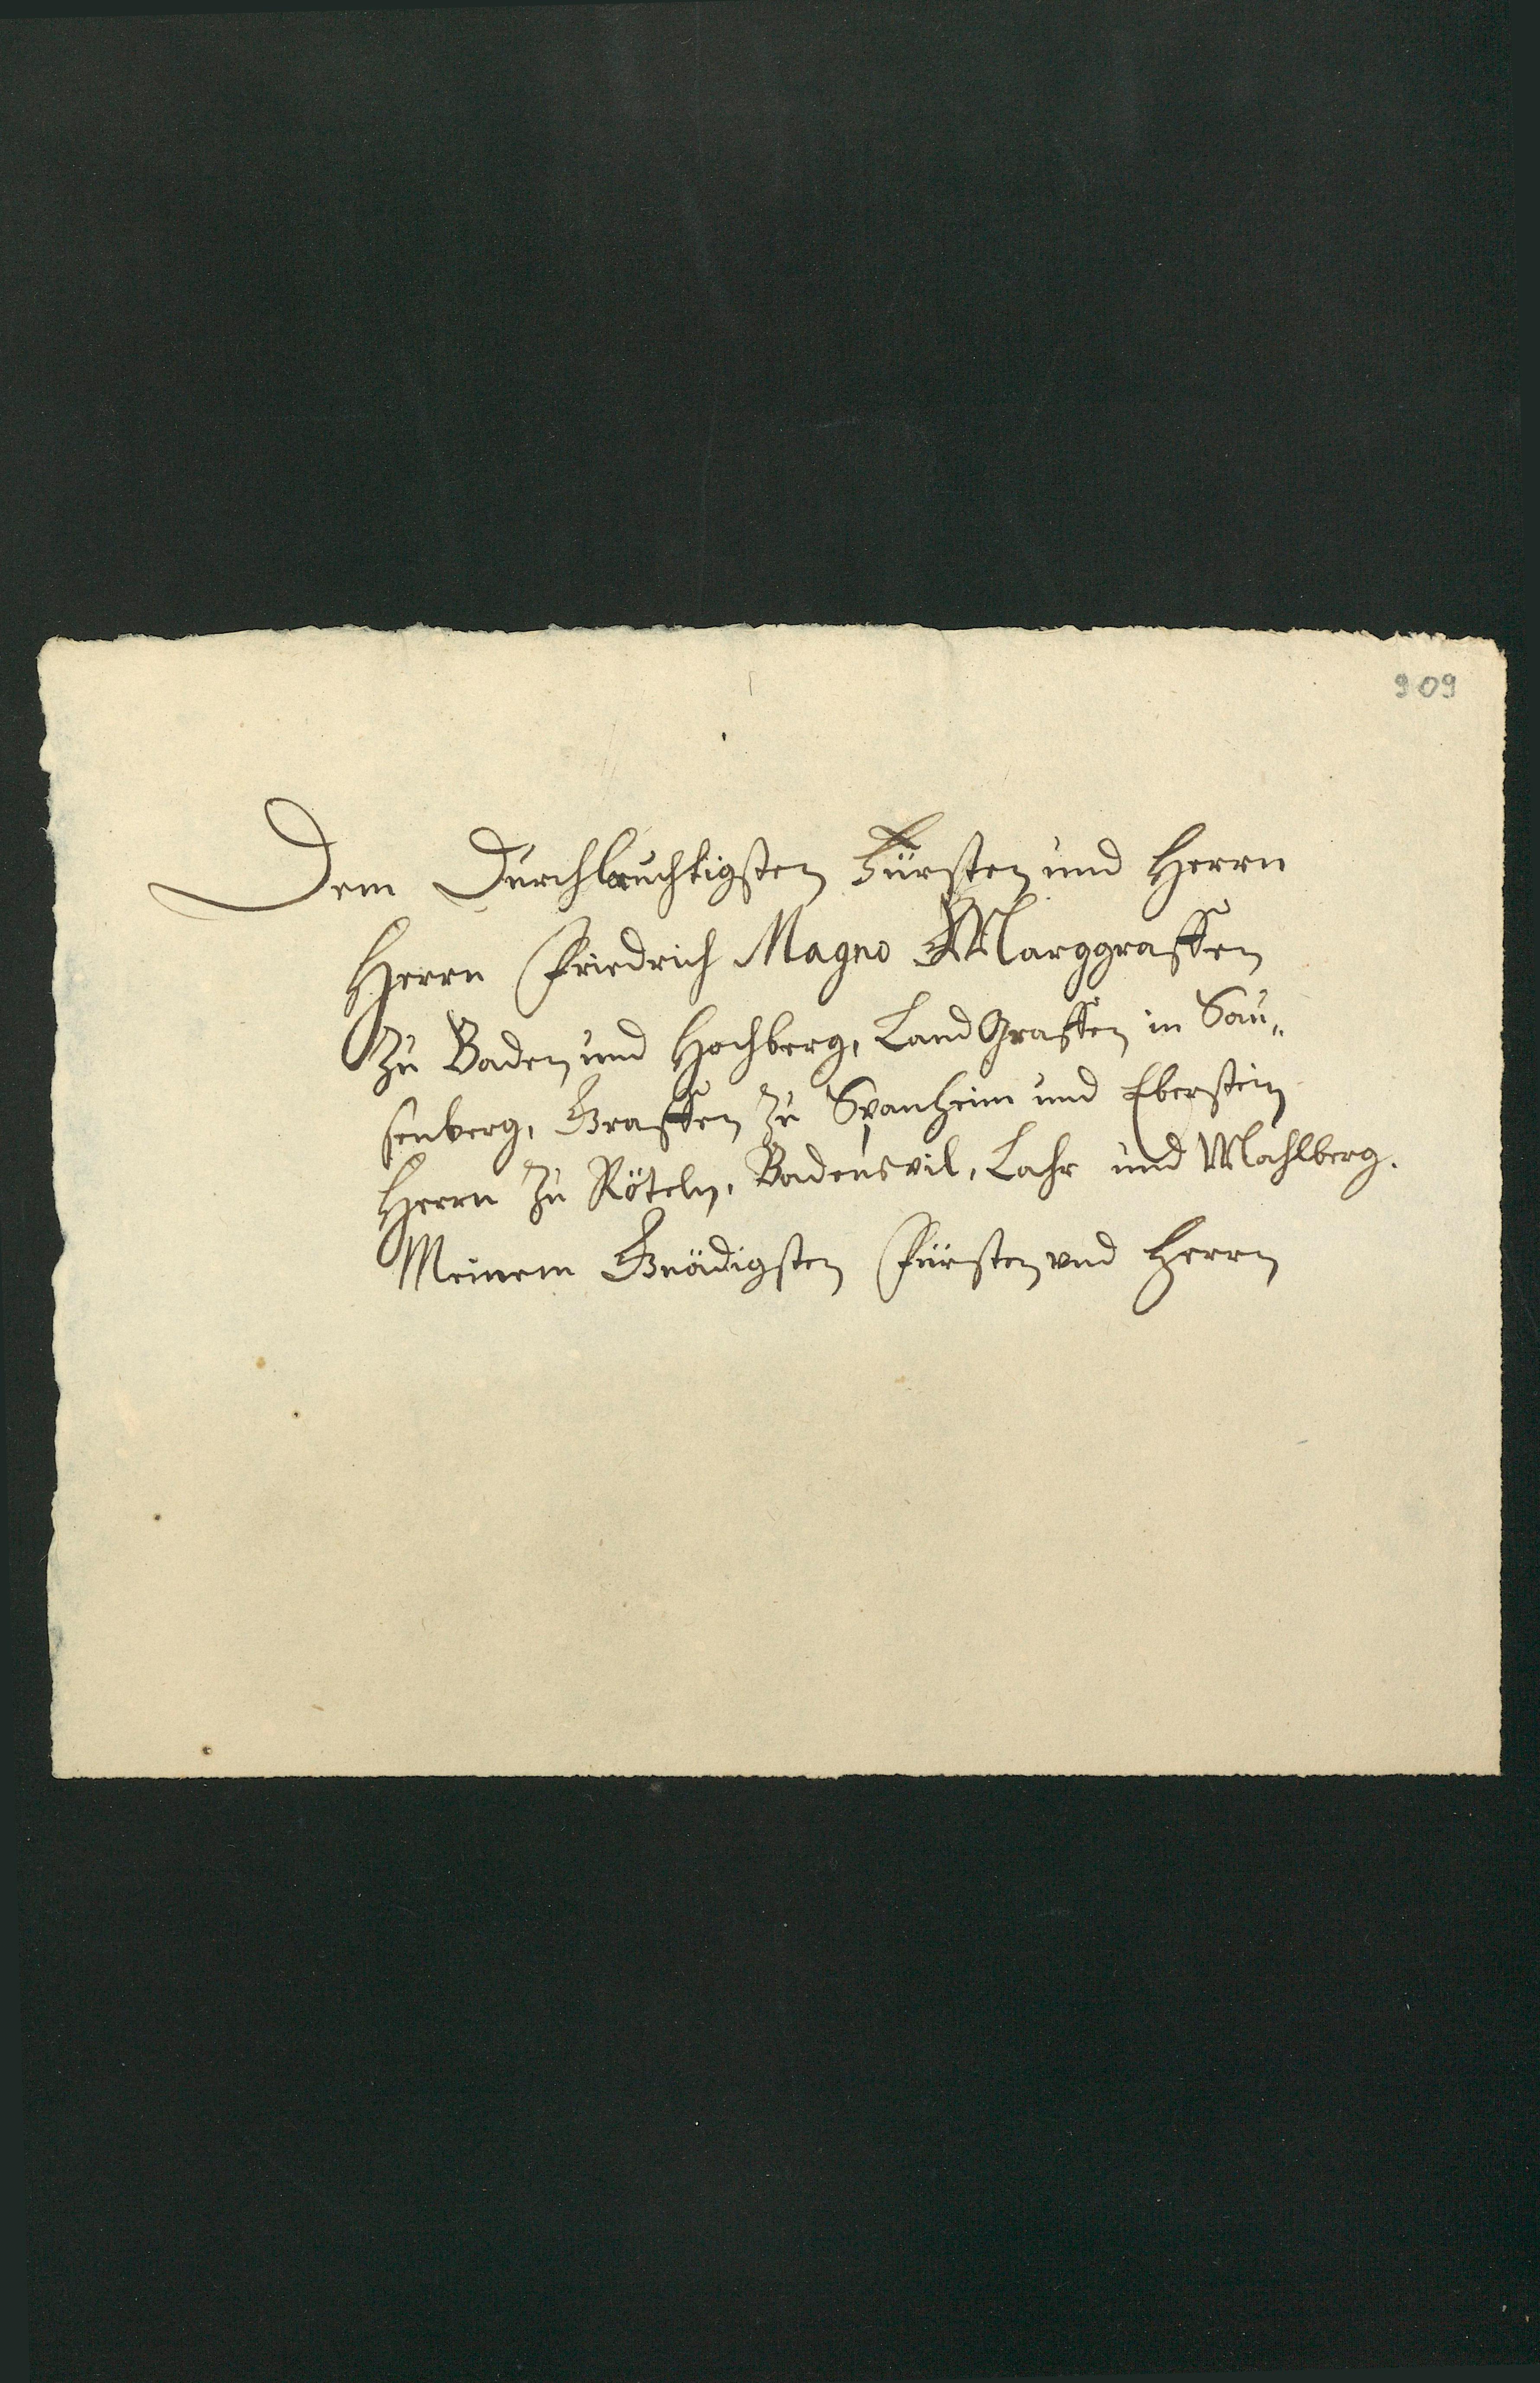 909
Dem Durchleuchtigsten Fürsten und Herrn
Herrn Friedrich Magno Marggraffen
Zu Baden und Hochberg, Land Graffen in Sau„
senberg, Graffen Zu Spanheim und Eberstein
Herrn Zu Röteln, Badenvil, Lahr und Mahlberg.
Meinem Gnädigsten Fürsten vnd Herrn